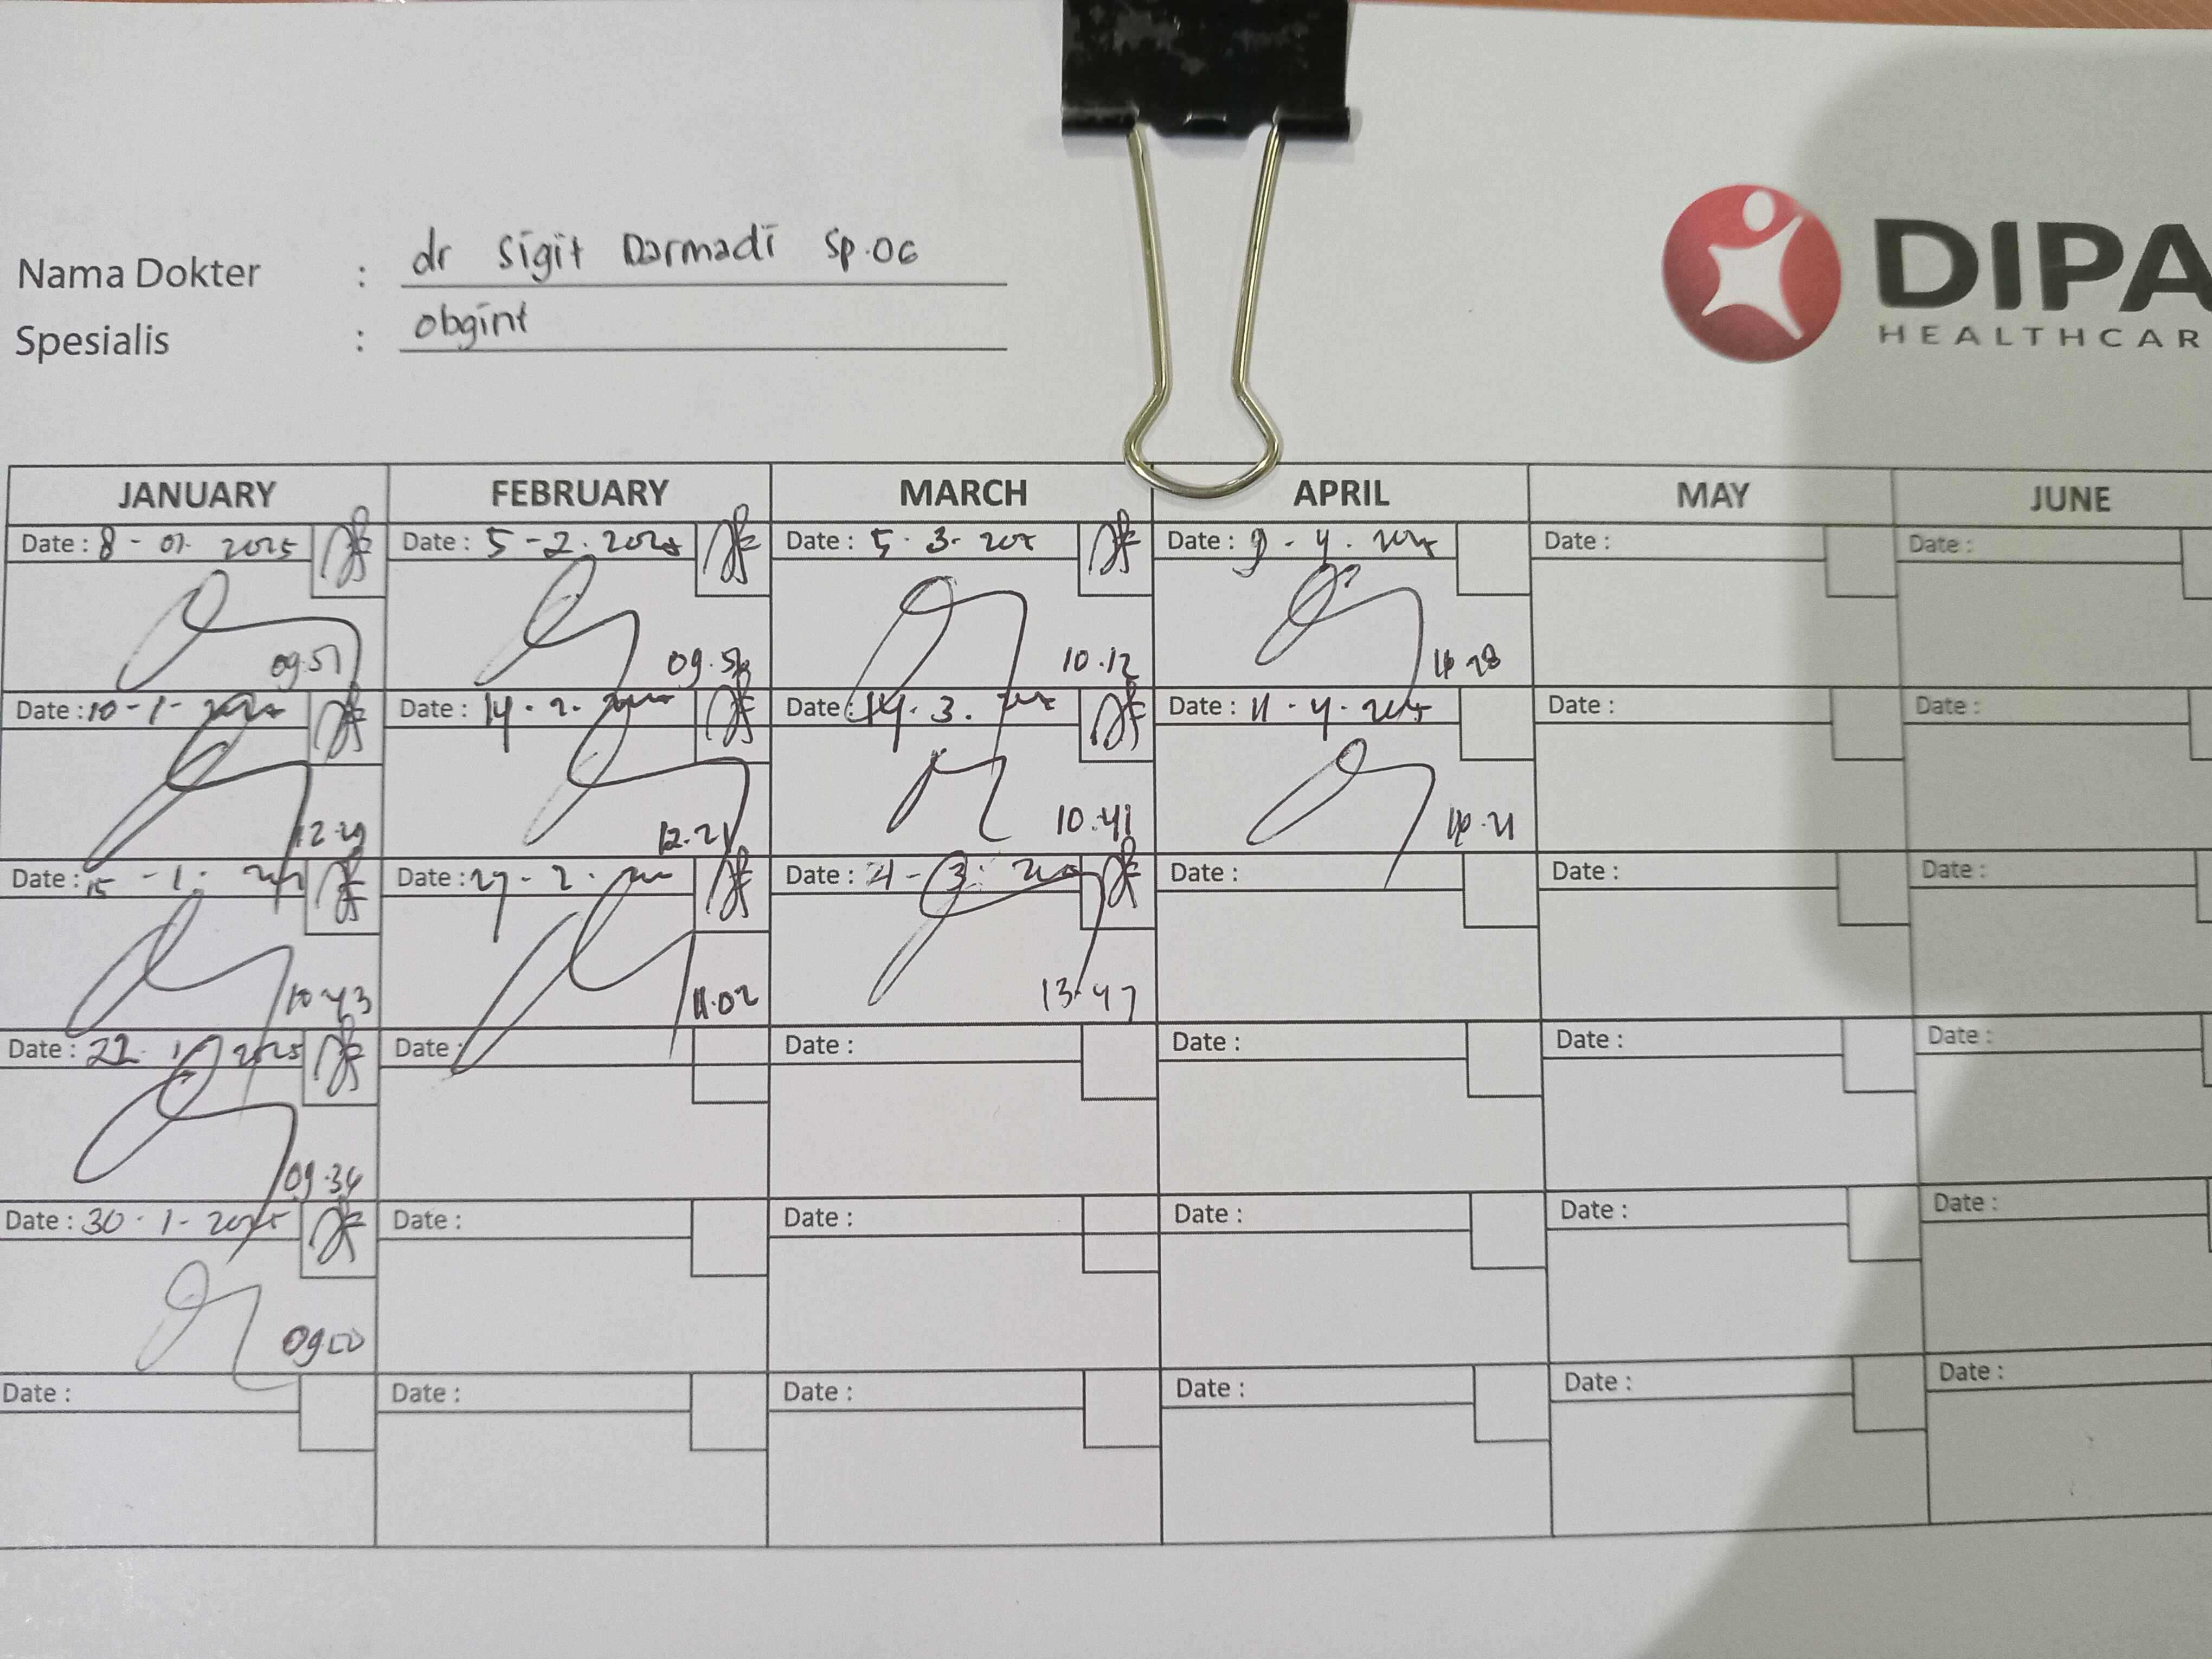 Nama Dokter : dr Sigit Darmadi Sp.OG
Spesialis : obgint
DIPA
HEALTHCAR
JANUARY FEBRUARY MARCH APRIL MAY JUNE
Date : 8 - 01. 2025 Date : 5 - 2. 2025 Date : 5 · 3 - Date : 9 - 4 . Date : Date :
09.51 10.12
Date : 10 - 1 - Date : 14 - 2 - Date : 14 . 3 . Date : 11 - 4 - 2025 Date : Date :
12.21 10.41
Date : 15 - 1 - Date : 27 - 2 - Date : - 3 - Date : Date : Date :
10.43 11.02 13.47
Date : 22 2025 Date : Date : Date : Date : Date :
09.34
Date : 30 - 1 - 2025 Date : Date : Date : Date : Date :
Date : Date : Date : Date : Date : Date :